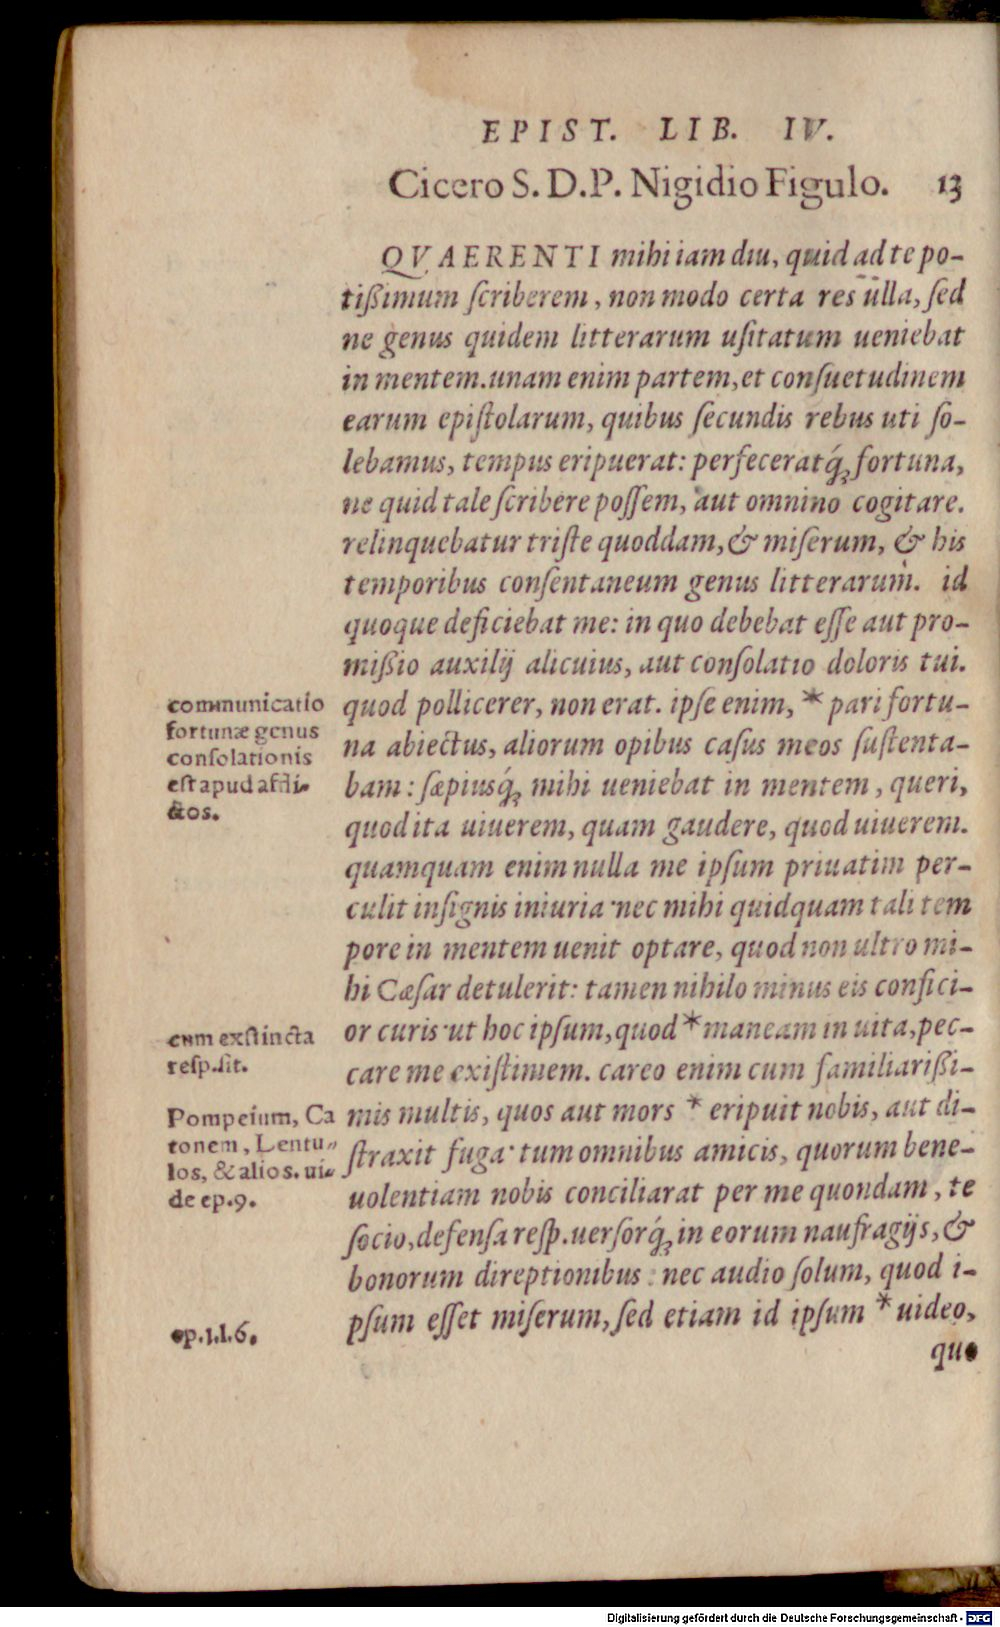 EPIST. LIB. IV.
Cicero S. D. P. Nigidio Figulo. 13
QVAERENTI mihi iam diu, quid ad te po-
tißimum ſcriberem, non modo certa res ulla, ſed
ne genus quidem litterarum uſitatum ueniebat
in mentem. unam enim partem, et conſuetudinem
earum epiſtolarum, quibus ſecundis rebus uti ſo-
lebamus, tempus eripuerat: perfeceratq́; fortuna,
ne quid tale ſcribere poſſem, aut omnino cogitare.
relinquebatur triſte quoddam, & miſerum, & his
temporibus conſentaneum genus litterarum. id
quoque deficiebat me: in quo debebat eſſe aut pro-
mißio auxilij alicuius, aut conſolatio doloris tui.
quod pollicerer, non erat. ipſe enim, * pari fortu-
na abiectus, aliorum opibus caſus meos ſuſtenta-
bam: ſæpiusq́; mihi ueniebat in mentem, queri,
quod ita uiuerem, quam gaudere, quod uiuerem.
quamquam enim nulla me ipſum priuatim per-
culit inſignis iniuria· nec mihi quidquam tali tem
pore in mentem uenit optare, quod non ultro mi-
hi Cæſar detulerit: tamen nihilo minus eis confici-
or curis· ut hoc ipſum, quod * maneam in uita, pec-
care me exiſtimem. careo enim cum familiarißi-
mis multis, quos aut mors * eripuit nobis, aut di-
ſtraxit fuga· tum omnibus amicis, quorum bene-
uolentiam nobis conciliarat per me quondam, te
ſocio, defenſa reſp. uerſorq́; in eorum naufragijs, &
bonorum direptionibus: nec audio ſolum, quod i-
pſum eſſet miſerum, ſed etiam id ipſum * uideo,
quo
communicatio
fortunæ genus
conſolationis
eſt apud affli-
ctos.
cum exſtincta
reſp. ſit.
Pompeium, Ca
tonem, Lentu-
los, & alios. ui-
de ep. 9.
ep. 1. l. 6.
Digitalisierung gefördert durch die Deutsche Forschungsgemeinschaft - DFG